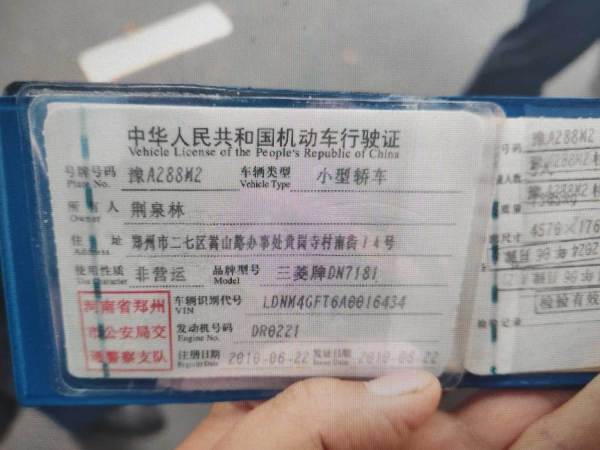 中华人民共和国机动车行驶证
Vehicle License of the People's Republic of China
号牌号码 豫A288M2 车辆类型 小型轿车
Plate No. Vehicle Type
所有人 荆泉林
Owner
住址 郑州市二七区嵩山路办事处黄岗寺村南街14号
Address
使用性质 非营运 品牌型号 三菱牌DN7181
Use Character Model
河南省郑州
市公安局交
通警察支队
车辆识别代号 LDNM4GFT6A0016434
VIN
发动机号码 DR0221
Engine No.
注册日期 2010-06-22 发证日期 2010-06-22
Register Date Issue Date
号码 豫A288M2
人数
质量
尺寸 4570×176
检验记录
检验有效